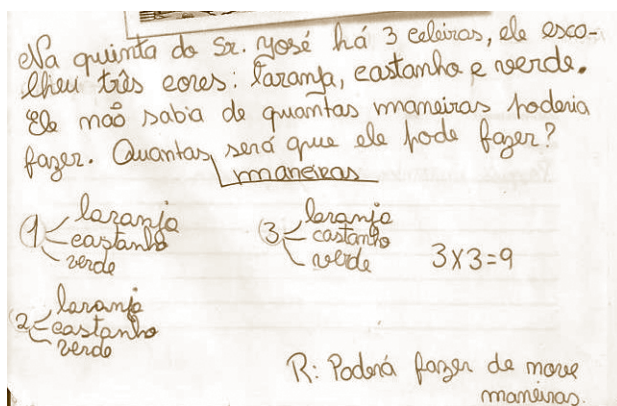 Na quinta do Sr. José há 3 celeiros, ele esco-
lheu três cores: laranja, castanho e verde.
Ele não sabia de quantas maneiras poderia
fazer. Quantas maneiras será que ele pode fazer?
1 laranja
castanho
verde
3 laranja
castanho
verde
3x3=9
2 laranja
castanho
verde
R: Poderá fazer de nove
maneiras.